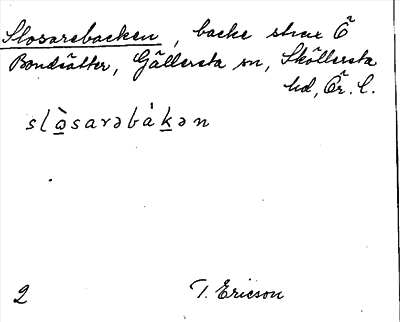 Slosarebacken, backe strax Ö
Bondsätter, Gällersta sn, Sköllersta
hd, Ör. l.
slɷ̀sarəbákən
2 T. Ericson